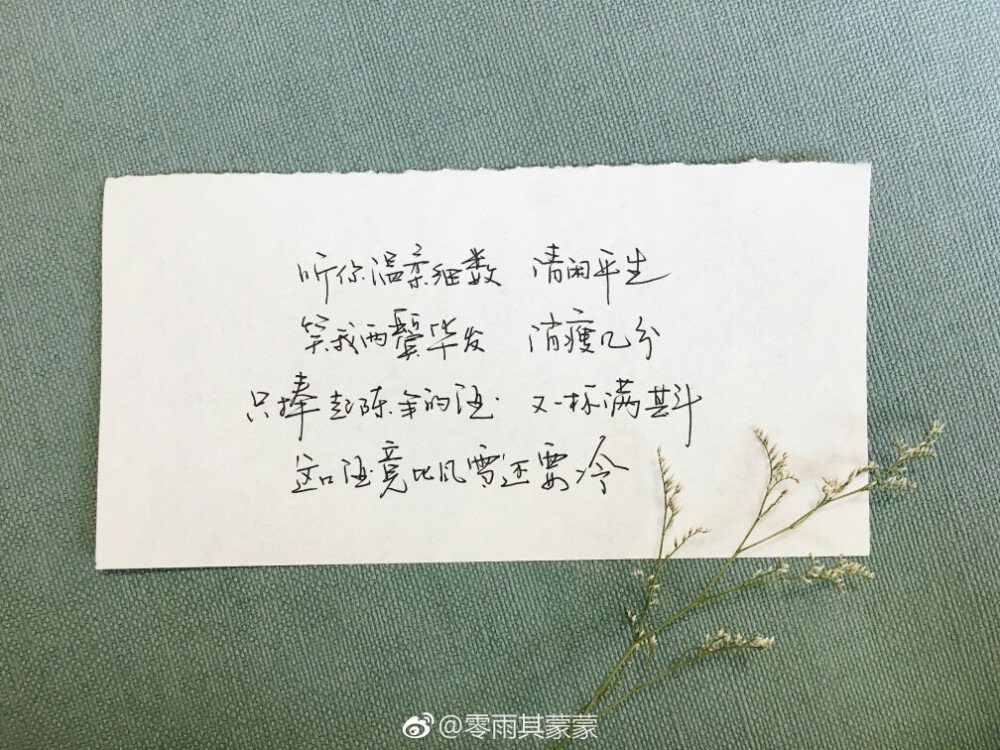 听你温柔细数 清闲平生
笑我两鬓华发 消瘦几分
只捧起陈年的酒 又一杯满其斗
这口酒竟比风雪还要冷
@零雨其蒙蒙